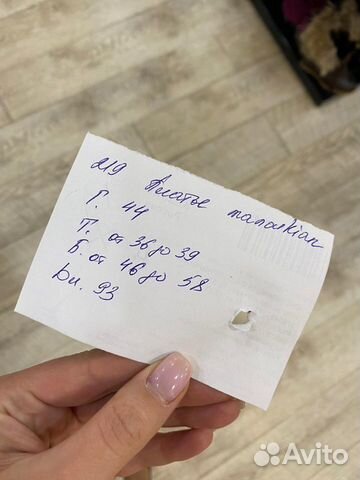 219 Платье manoukian
Г. 44
Т. от 36 до 39
Б. от 46 до 58
Дл. 93
Avito